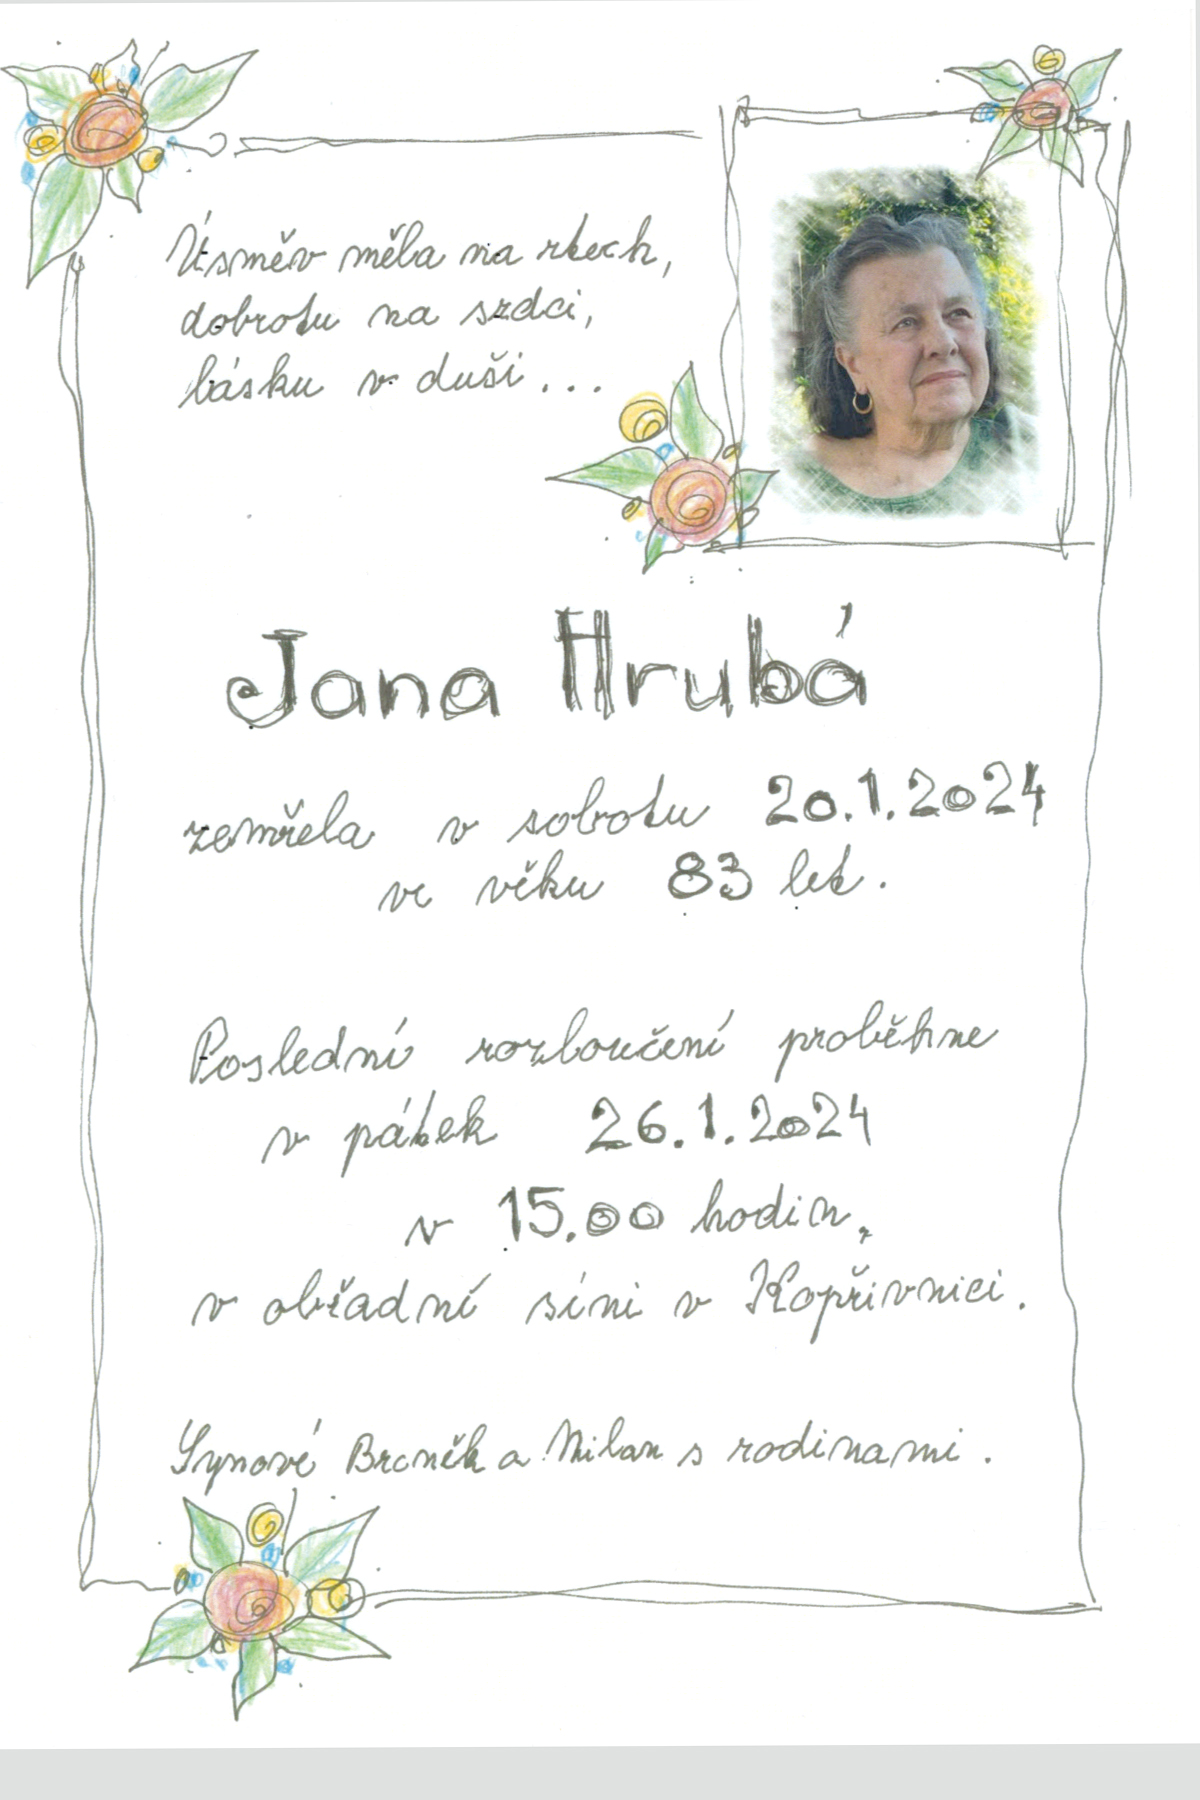 Úsměv měla na rtech,
dobrotu na srdci,
lásku v duši...
Jana Hrubá
zemřela v sobotu 20.1.2024
ve věku 83 let.
Poslední rozloučení proběhne
v pátek 26.1.2024
v 15.00 hodin,
v obřadní síni v Kopřivnici.
Synové Broněk a Milan s rodinami.